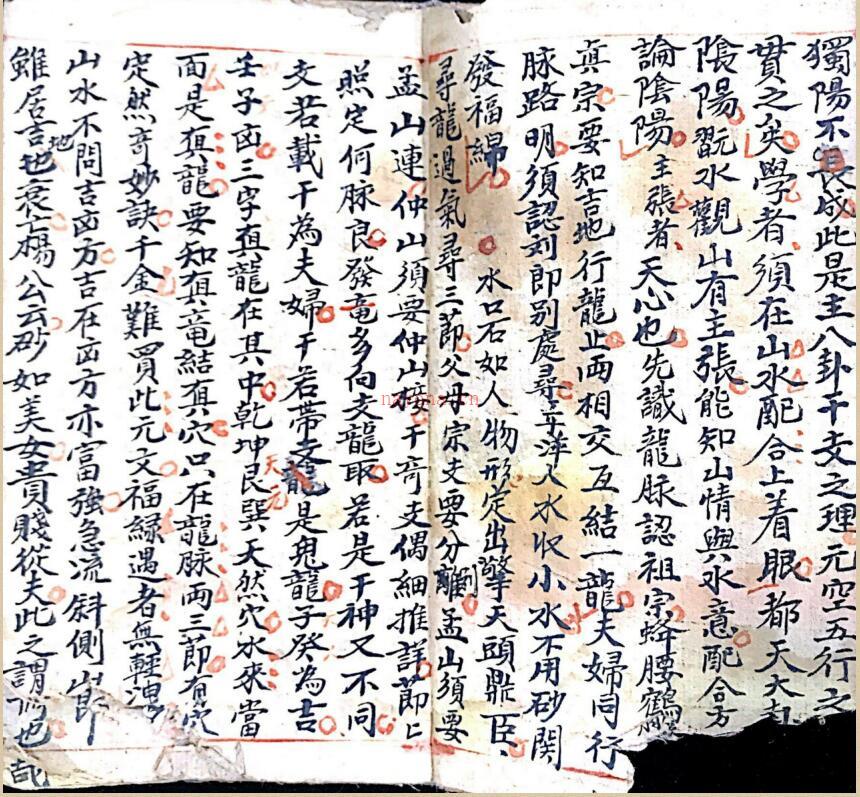 獨陽不長成此是主八卦干支之理元空五行之
貫之矣學者須在山水配合上着眼都天大卦
陰陽翫水觀山有主張能知山情與水意配合方
論陰陽主張者天心也先識龍脉認祖宗蜂腰鶴
真宗要知吉地行龍止兩相交互結一龍夫婦同行
脉路明須認刘郎別處尋平洋大水收小水不用砂関
發福綿 水口石如人物形定出擎天頭鼎臣
尋龍過氣尋三節父母宗支要分離孟山須要
孟山連仲山須要仲山接干奇支偶細推詳節上
照定何脉良發竜多向支龍取若是干神又不同
支若載干為夫婦干若帶支龍是鬼龍子癸為吉
壬子凶三字真龍在其中乾坤艮巽天然穴水來當
天元
面是真龍要知真竜結真穴只在龍脉兩三節有穴
定然奇妙訣千金難買此元文福緣遇者無輕洩
山水不問吉凶方吉在凶方亦富強急流斜側山節
雖居吉地也衰亡楊公云砂如美女貴賤從夫此之謂也哉